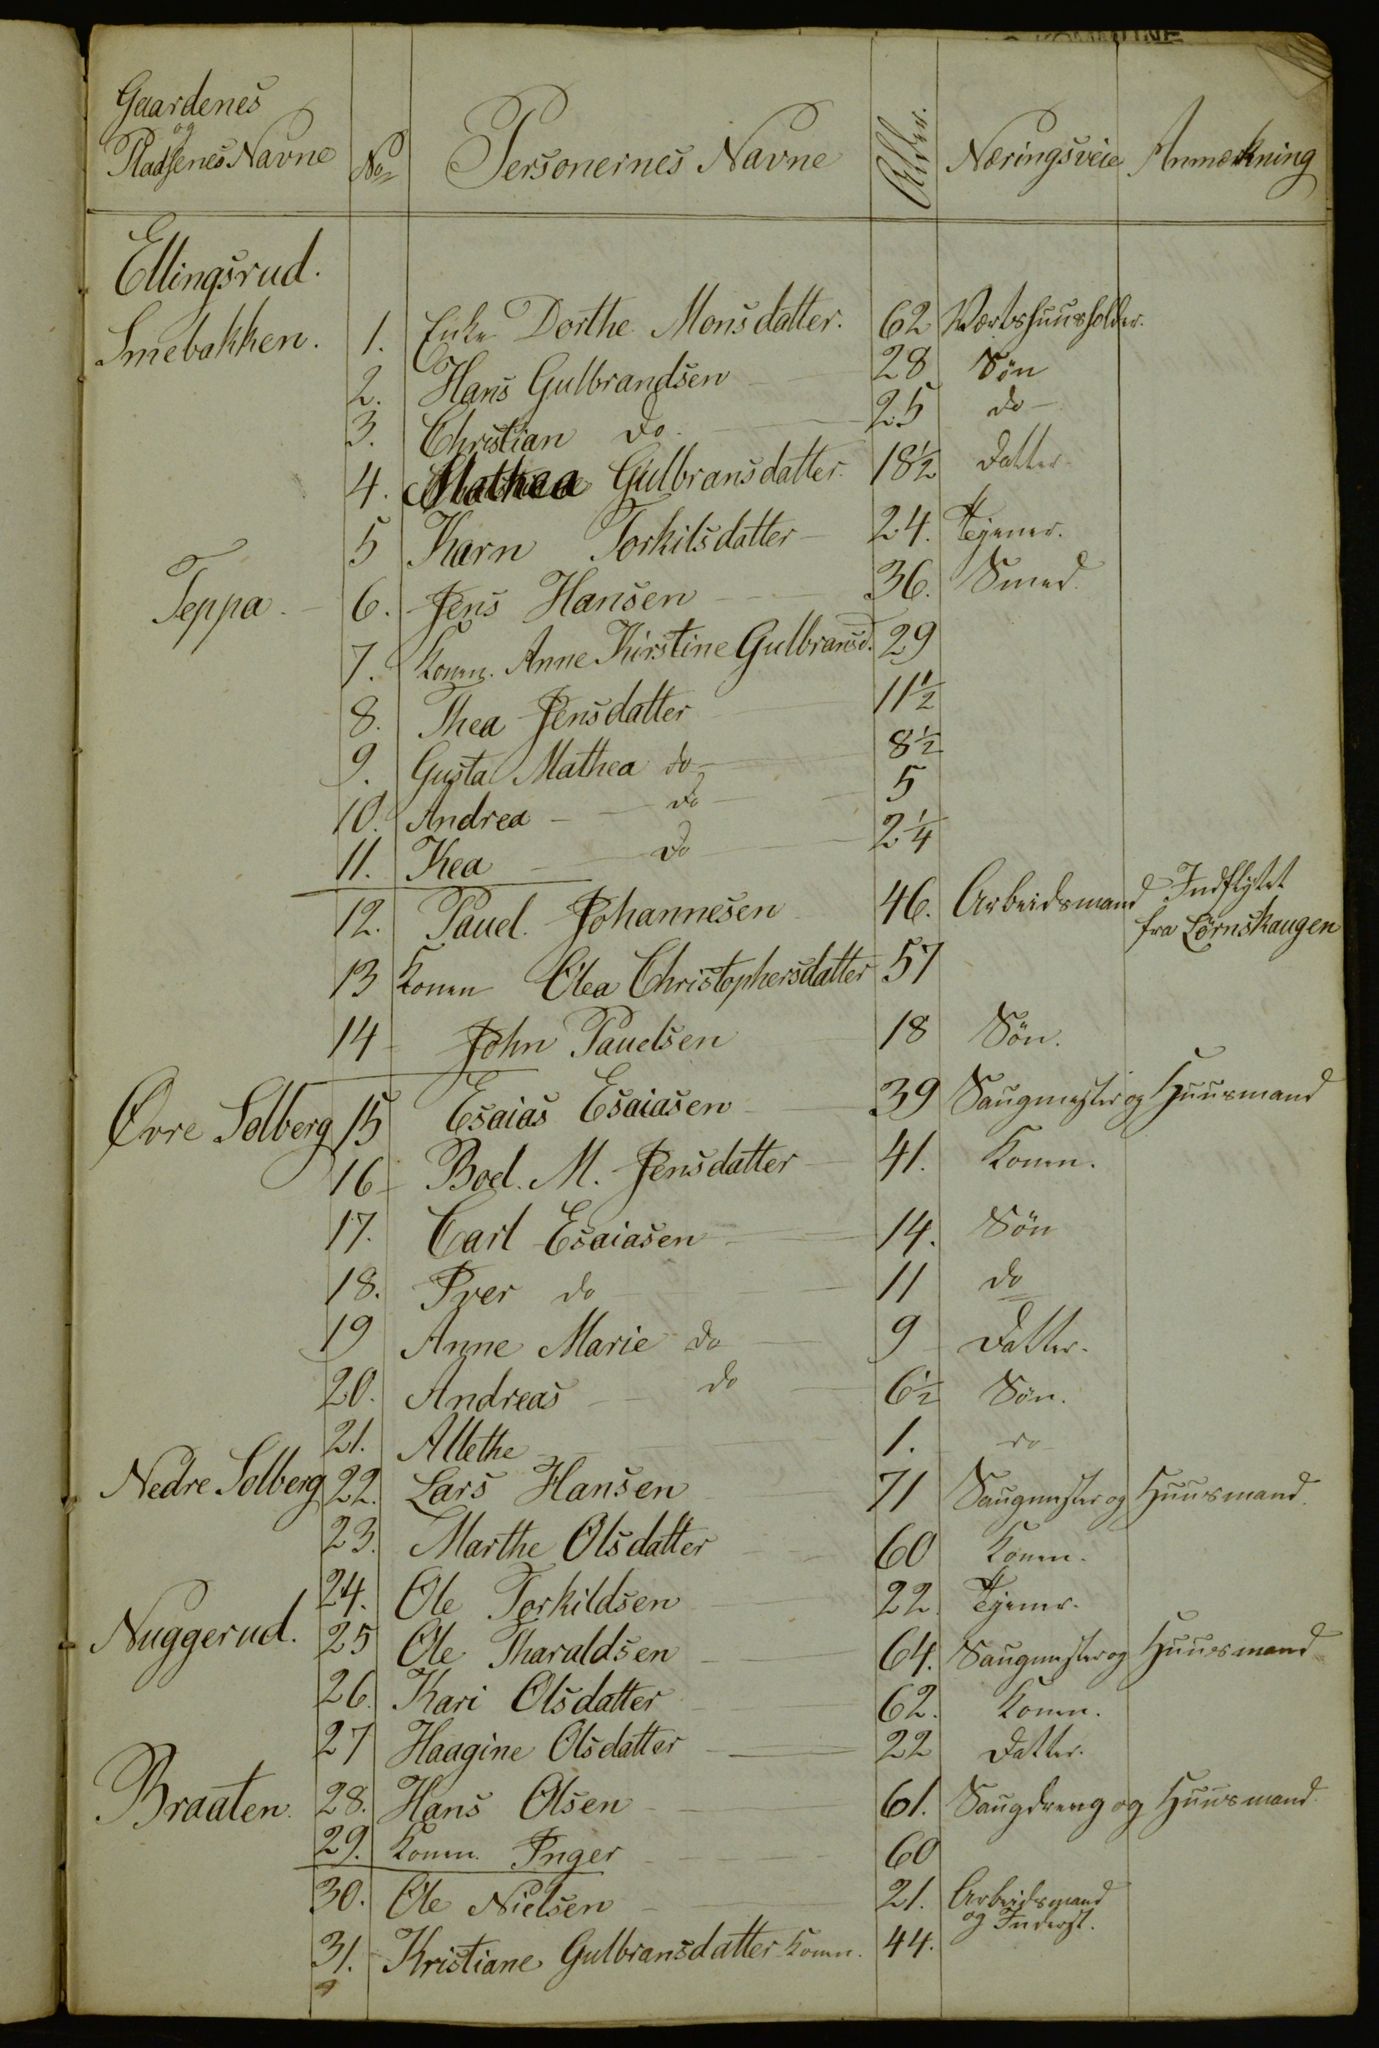 KOMMUNE
Gaardenes
og
Pladsenes Navne No Personernes Navne Alder. Næringsveie Anmærkning
Ellingsrud.
Smebakken. 1. Enke Dorthe Monsdatter. 62 Værtshuusholder.
2. Hans Gulbrandsen 28 Søn
3. Christian do 25 do
4. Mathea Gulbransdatter. 18½ Datter
5 Karn Torkilsdatter 24. Tjener.
Teppa. 6. Jens Hansen 36. Smed
7. Konen. Anne Kirstine Gulbransd. 29
8. Thea Jensdatter 11½
9. Gusta Mathea do 8½
10. Andrea do 5
11. Kea do 2¼
12. Pauel. Johannesen 46. Arbeidsmand Indflytet
fra Lørnskaugen
13 Konen Olea Christophersdatter 57
14 John Pauelsen 18 Søn.
Øvre Solberg 15 Esaias Esaiasen 39 Saugmester og Huusmand
16 Boel. M. Jensdatter 41. Konen.
17. Carl Esaiasen 14. Søn
18. Iver do 11 do
19 Anne Marie do 9 Datter.
20. Andreas do 6½ Søn.
21. Allethe 1. do
Nedre Solberg 22. Lars Hansen 71 Saugmester og Huusmand.
23. Marthe Olsdatter 60 Konen.
24. Ole Torkildsen 22 Tjener.
Nuggerud. 25 Ole Tharaldsen 64. Saugmester og Huusmand
26. Kari Olsdatter 62. Konen.
27 Haagine Olsdatter 22 Datter.
Braaten. 28. Hans Olsen 61. Saugdreng og Huusmand.
29. Konen. Inger 60
30. Ole Nielsen 21. Arbeidsmand
og Inderst.
31. Kristiane Gulbransdatter Konen. 44.